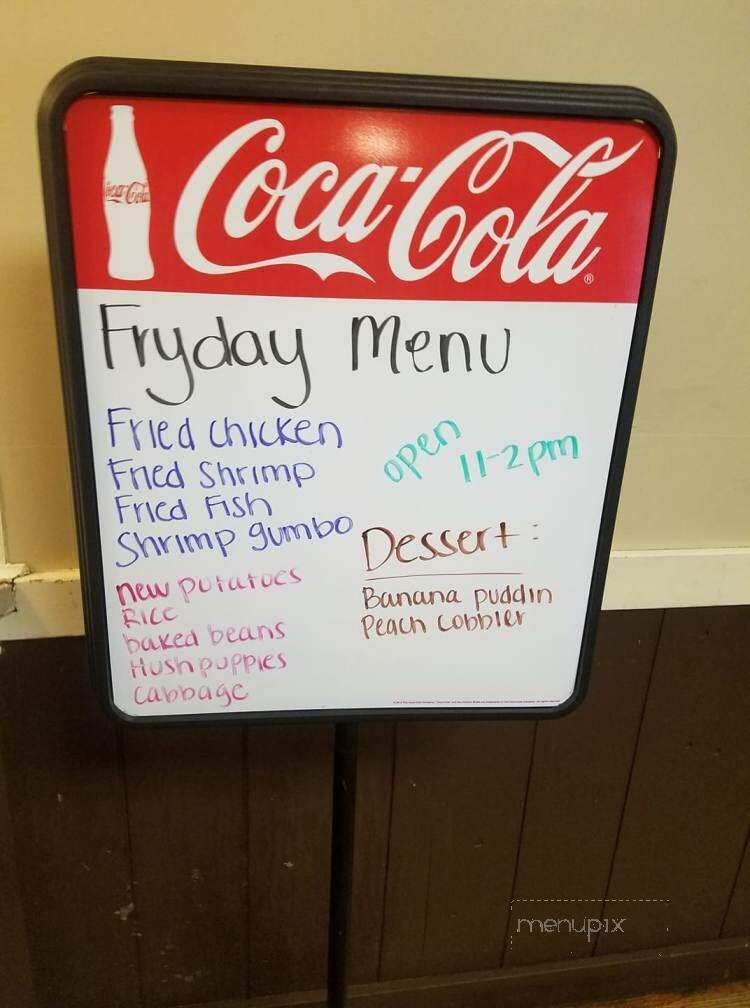 Coca-Cola
Coca-Cola®
Fryday Menu
Fried chicken
Fried Shrimp
Fried Fish
Shrimp gumbo
open
11-2pm
new putatoes
Rice
baked beans
Hushpuppies
cabbage
Dessert:
Banana puddin
Peach Cobbler
menupix